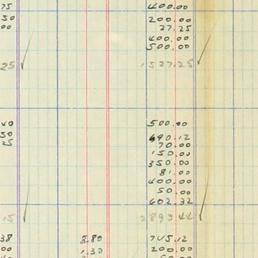 75 400.00
30 200.00
00 27.25
400.00
500.00
25 1527.25
40 500.00
50 640.12
25 70.00
150.00
350.00
81.00
400.00
50.00
602.32
15 2893.44
38 8.80 745.12
00 1.30 200.00
50.00